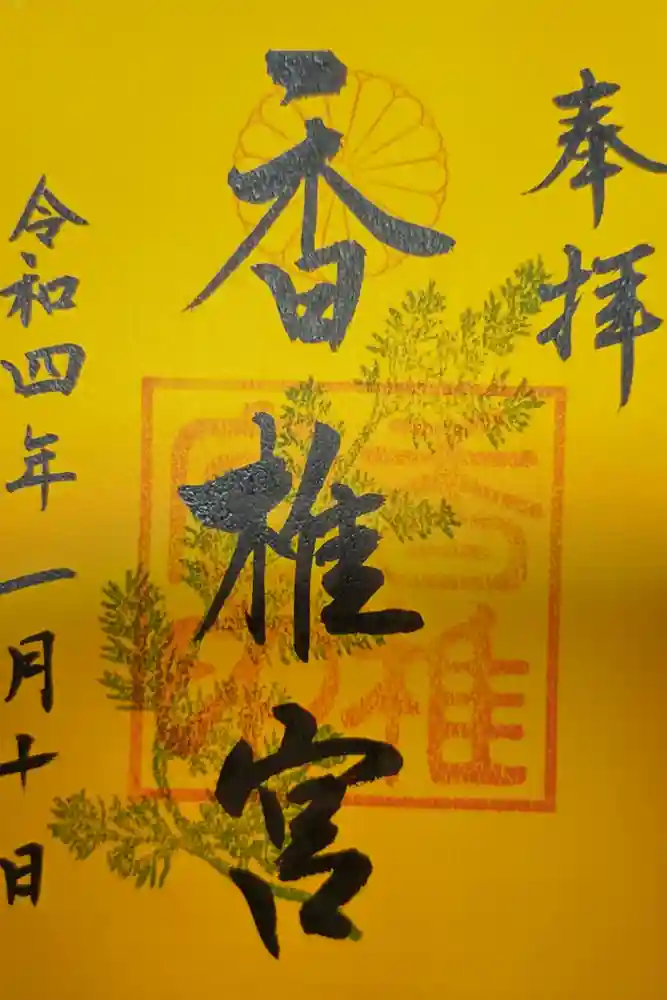 奉拝
香椎宮
令和四年一月十日